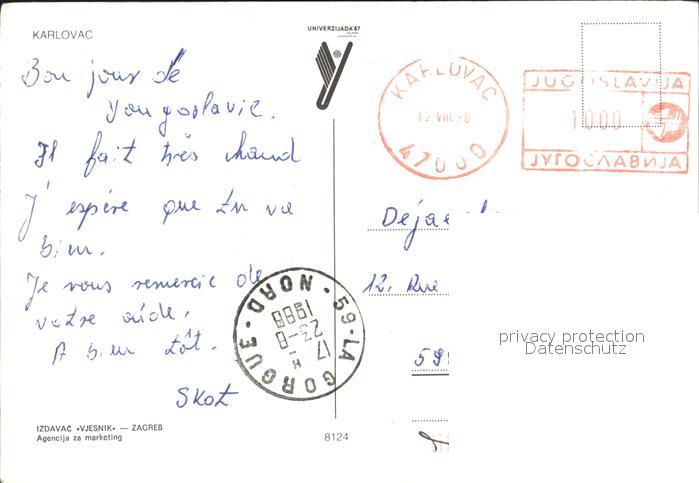 KARLOVAC
UNIVERZIJADA'87
Bon jour de
Yougoslavie.
Il fait très chaud
J'espère que tu va
bien.
Je vous remercie de
votre aide.
A bien tôt.
Skot
IZDAVAČ «VJESNIK» — ZAGREB
Agencija za marketing
8124
KARLOVAC
12 VIII. 88
47000
JUGOSLAVIJA
1000
ЈУГОСЛАВИЈА
59-LA GORGUE-NORD
17 H
23-8
1988
12, Rue
privacy protection
Datenschutz